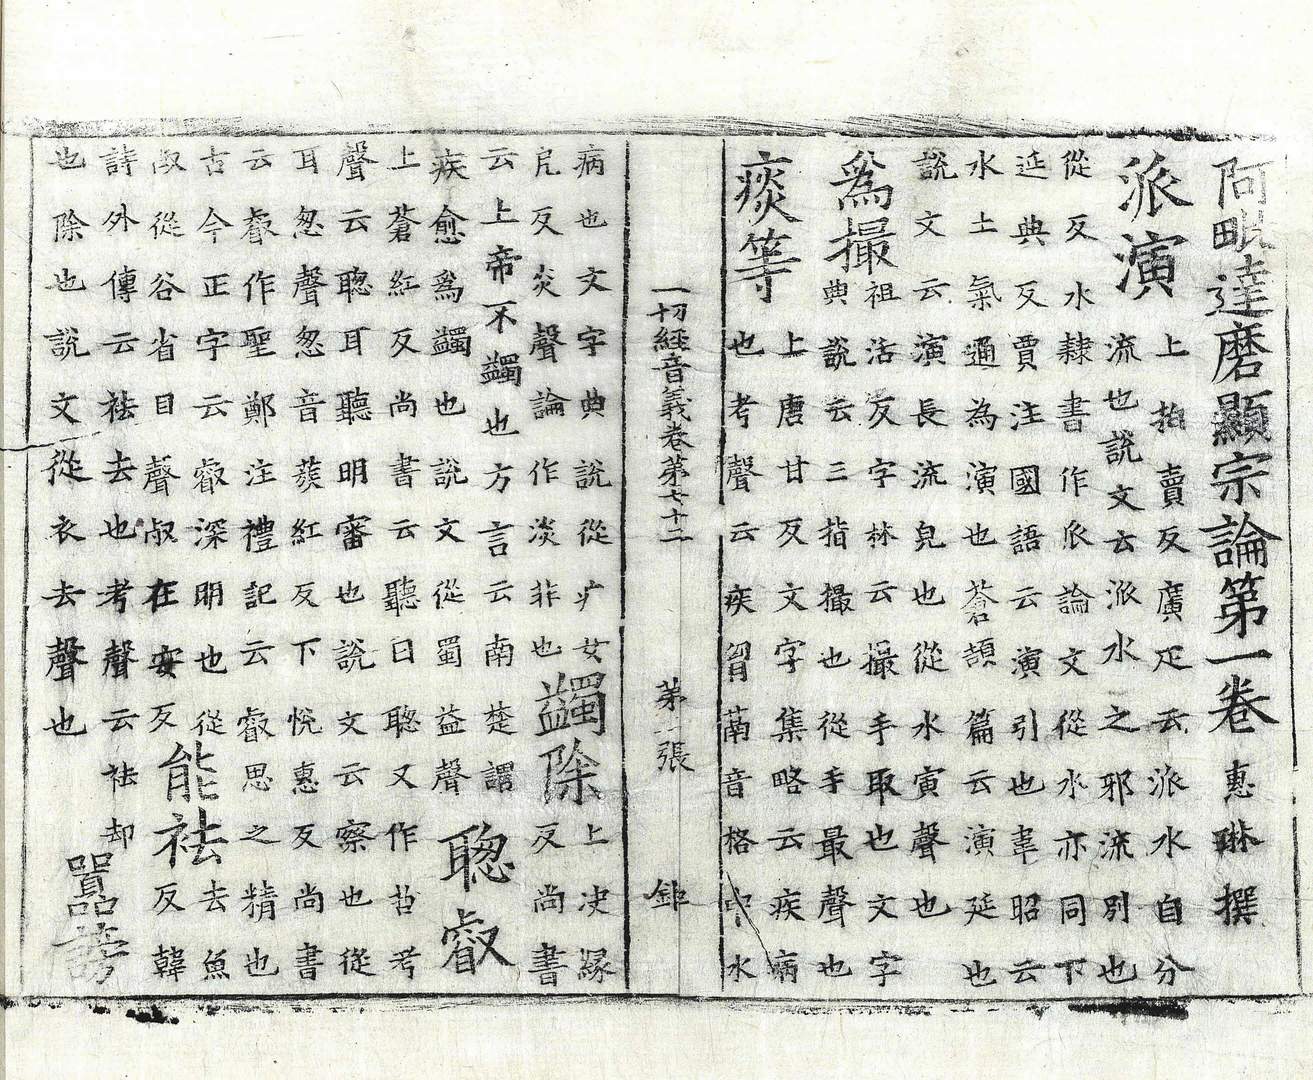 阿毗達磨顯宗論第一卷 惠琳撰
派演 上拍賣反廣疋云派水自分
流也說文云派水之邪流別也
從反水隸書作𠂢論文從水亦同下
延典反賈注國語云演引也韋昭云
水土氣通為演也蒼頡篇云演延也
說文云演長流皃也從水寅聲也
爲撮 祖活反字林云撮手取也文字
典說云三指撮也從手最聲也
痰等 上唐甘反文字集略云疾病
也考聲云疾胷鬲音格中水
一切經音義卷第七十二 第一張 鉅
病也文字典說從疒女
反炎聲論作淡非也
蠲除 上决緣
反尚書
云上帝不蠲也方言云南楚謂
疾愈爲蠲也說文從蜀益聲
聰叡
上蒼紅反尚書云聽曰聰又作哲考
聲云聰耳聽明審也說文云察也從
耳怱聲怱音蔟紅反下悅惠反尚書
云叡作聖鄭注禮記云叡思之精也
古今正字云叡深明也從
從谷省目聲在安反
能袪 去魚
反韓
詩外傳云袪去也考聲云袪却
也除也說文從衣去聲也
囂謗